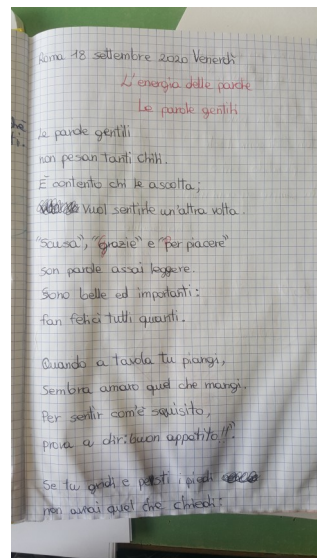 Roma 18 settembre 2020 Venerdì
L'energia delle parole
Le parole gentili
Le parole gentili
non pesan tanti chili.
È contento chi le ascolta;
Vuol sentirle un'altra volta.
"Scusa", "grazie" e "per piacere"
son parole assai leggere.
Sono belle ed importanti:
fan felici tutti quanti.
Quando a tavola tu piangi,
Sembra amaro quel che mangi.
Per sentir com'è squisito,
prova a dir: buon appetito!!".
Se tu gridi e pesti i piedi
non avrai quel che chiedi: